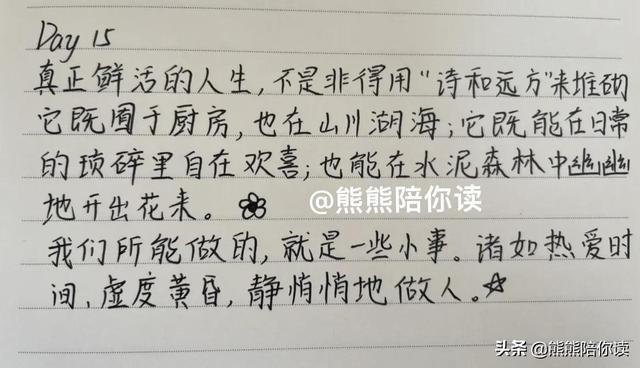 Day 15
真正鲜活的人生,不是非得用“诗和远方”来堆砌
它既囿于厨房,也在山川湖海;它既能在日常
的琐碎里自在欢喜;也能在水泥森林中幽幽
地开出花来。
@熊熊陪你读
我们所能做的,就是一些小事。诸如热爱时
间、虚度黄昏,静悄悄地做人。
头条 @熊熊陪你读